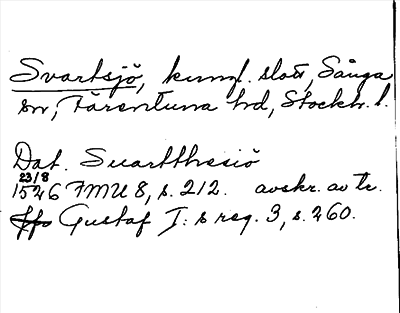 Svartsjö, kungl. slott, Sånga
sn, Färentuna hd, Stockh. l.
Dat. Suartthssiö
23/8
1526 FMU 8, s. 212. avskr. av tr.
Gustaf I:s reg. 3, s. 260.